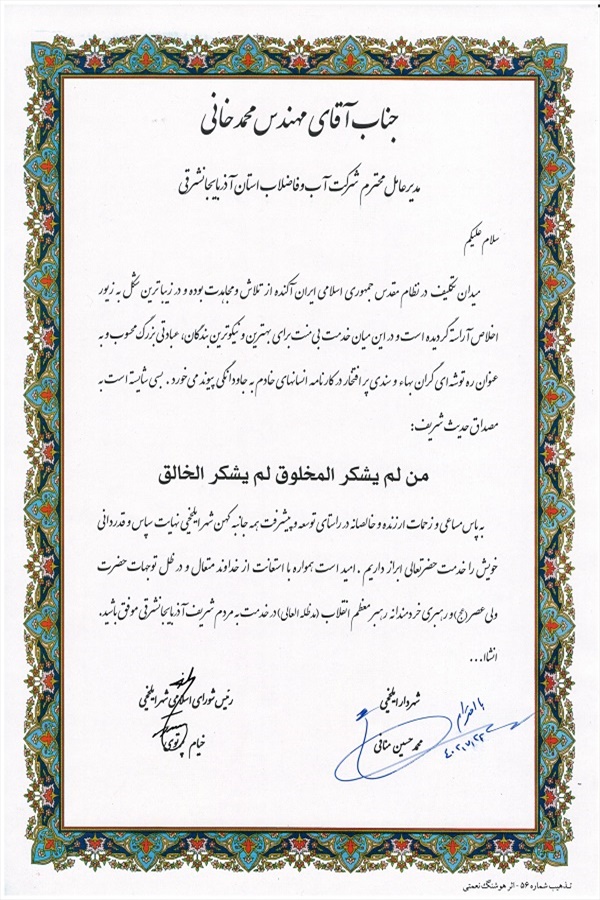 جناب آقای مهندس محمدخانی
مدیرعامل محترم شرکت آب و فاضلاب استان آذربایجانشرقی
سلام علیکم
میدان تکلیف در نظام مقدس جمهوری اسلامی ایران آکنده از تلاش و مجاهدت بوده و در زیباترین شکل به زیور
اخلاص آراسته گردیده است و در این میان خدمت بی منت برای بهترین و نیکوترین بندگان، عبادتی بزرگ محسوب و به
عنوان ره توشه ای گران بهاء و سندی پر افتخار در کارنامه انسانهای خادم به جاودانگی پیوند می خورد . بسی شایسته است به
مصداق حدیث شریف:
من لم یشکر المخلوق لم یشکر الخالق
به پاس مساعی و زحمات ارزنده و خالصانه در راستای توسعه و پیشرفت همه جانبه کهن شهر ایلخچی نهایت سپاس و قدردانی
خویش را خدمت حضرتعالی ابراز داریم . امید است همواره با استعانت از خداوند متعال و در ظل توجهات حضرت
ولی عصر(عج)و رهبری خردمندانه رهبر معظم انقلاب (مدظله العالی)در خدمت به مردم شریف آذربایجانشرقی موفق باشید.
انشاا...
شهردار ایلخچی
رئیس شورای اسلامی شهر ایلخچی
با احترام
محمد حسین منافی
خیام پرتوی
تذهیب شماره ۵۶ - اثر هوشنگ نعمتی